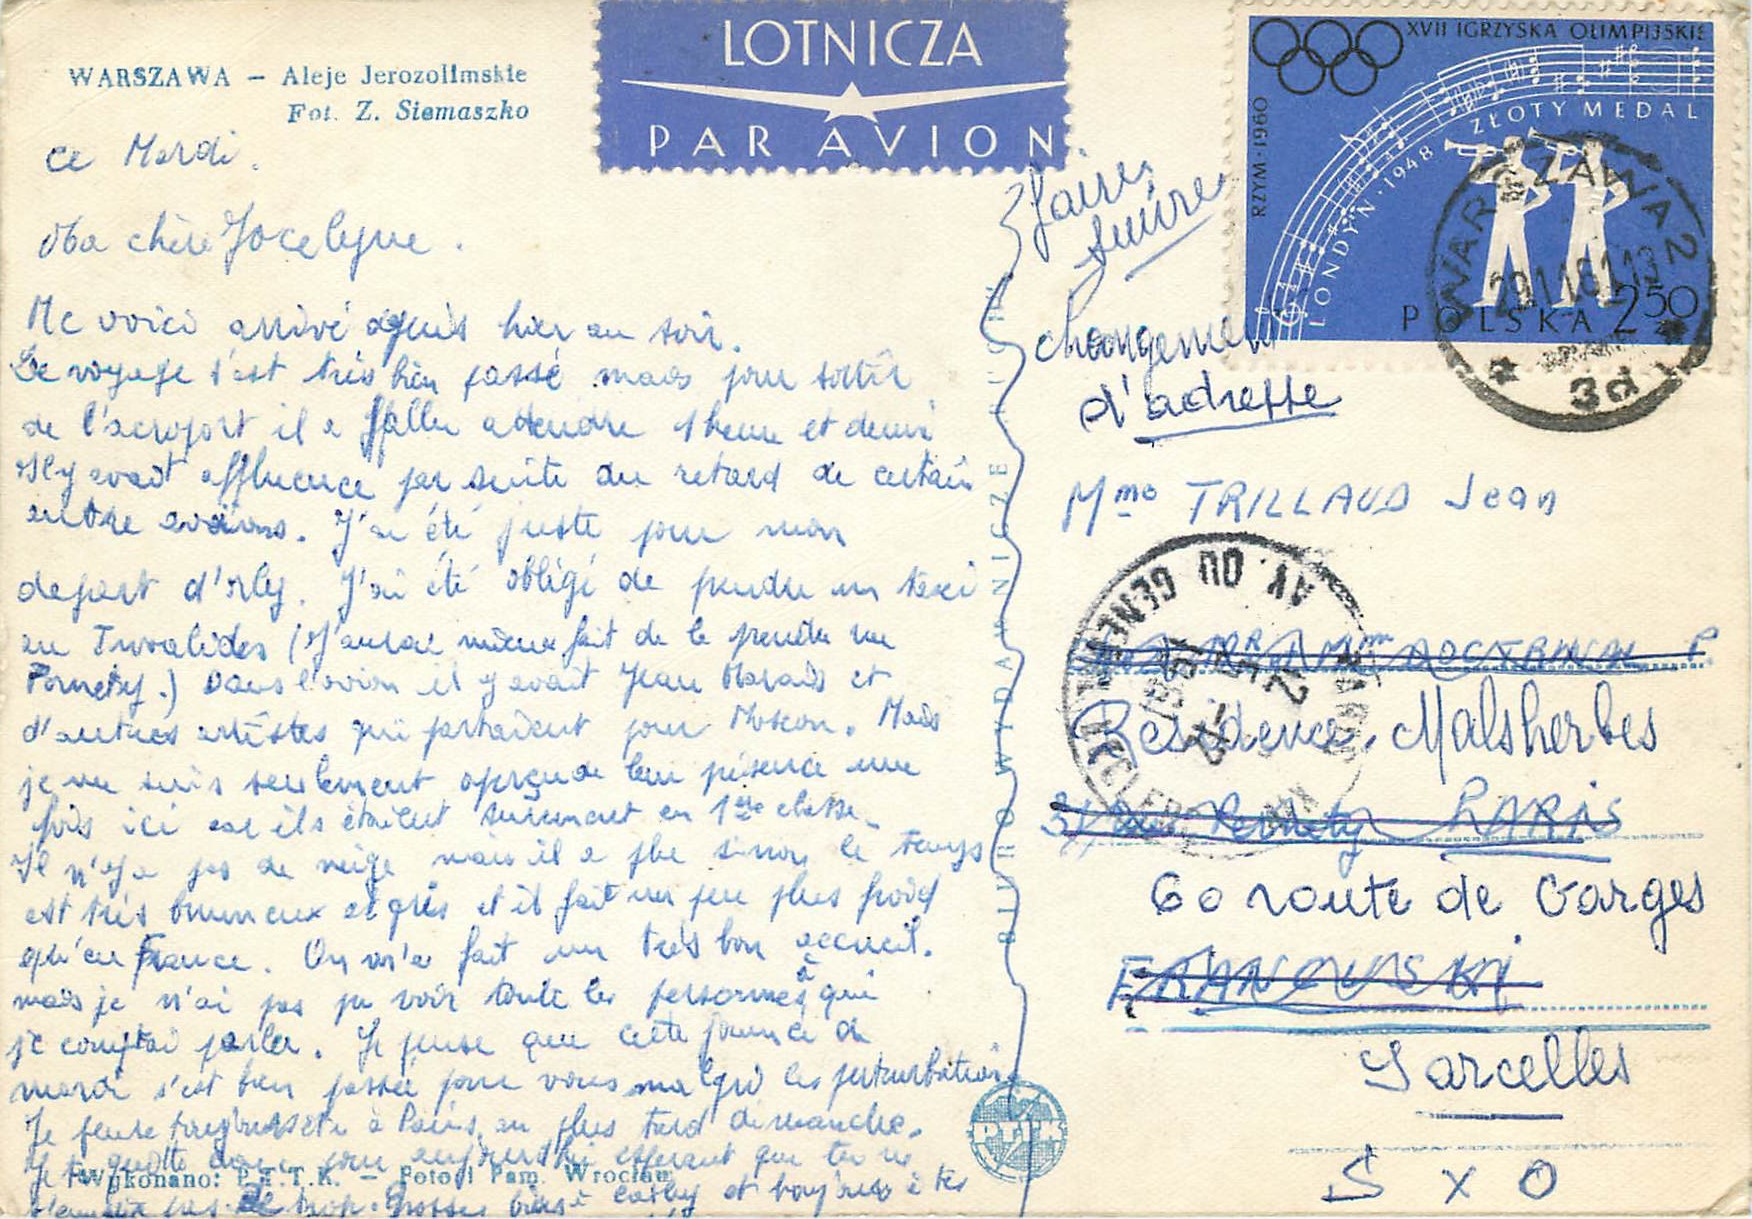 WARSZAWA — Aleje Jerozolimskie
Fot. Z. Siemaszko
LOTNICZA
PAR AVION
XVII IGRZYSKA OLIMPIJSKIE
RZYM·1960
ZŁOTY MEDAL
LONDYN·1948
POLSKA 2 50
WARSZAWA 2
29.11.61.19
3d
ce Mardi.
Ma chère Jocelyne.
Me voici arrivé depuis hier au soir.
Le voyage s'est très bien passé mais pour sortir
de l'aeroport il a fallu attendre 1 heure et demi
Il y avait affluence par suite du retard de certain
autre avions. J'ai été juste pour mon
depart d'orly. J'ai été obligé de prendre un taxi
au Invalides (J'aurai mieux fait de le prendre rue
Pernety.) Dans l'avion il y avait Jean Marais et
d'autres artistes qui partaient pour Moscou. Mais
je me suis seulement aperçu de leur présence une
fois ici car ils étaient surement en 1ère classe.
Il n'y a pas de neige mais il a plu sinon le temps
est très brumeux et gris et il fait un peu plus froid
qu'en France. On m'a fait un très bon accueil.
mais je n'ai pas pu voir toute les personnes à qui
je comptai parler. Je pense que cette journée de
mardi s'est bien passée pour vous malgré les perturbations
Je pense toujours être à Paris au plus tard dimanche.
Je te quitte donc pour aujourd'hui esperant que tu ne
t'ennuie pas de trop. Grosses bises à Cathy et bonjour à tes
Wykonano: P.T.T.K. — Foto i Pam. Wrocław
BIURO WYDAWNICZE RUCH
PTTK
faire suivre
changement
d'adresse
Mme TRILLAUD Jean
PARIS
AV. DU GENERAL LECLERC
12 H
1961
Residence Malsherbes
31 Rue Pernety PARIS
60 route de Garges
Sarcelles
S x O